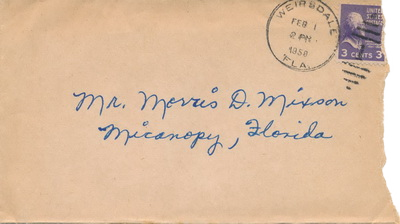 WEIRSDALE
FEB 1
2 PM
1950
FLA.
UNITED
STATES
3 CENTS 3
Mr. Morris D. Mixson
Micanopy, Florida